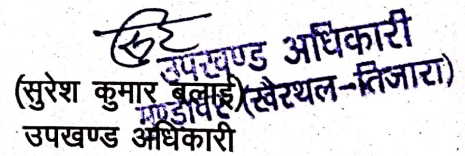 उपखण्ड अधिकारी
मुण्डावर (खैरथल-तिजारा)
(सुरेश कुमार बुलाई)
उपखण्ड अधिकारी